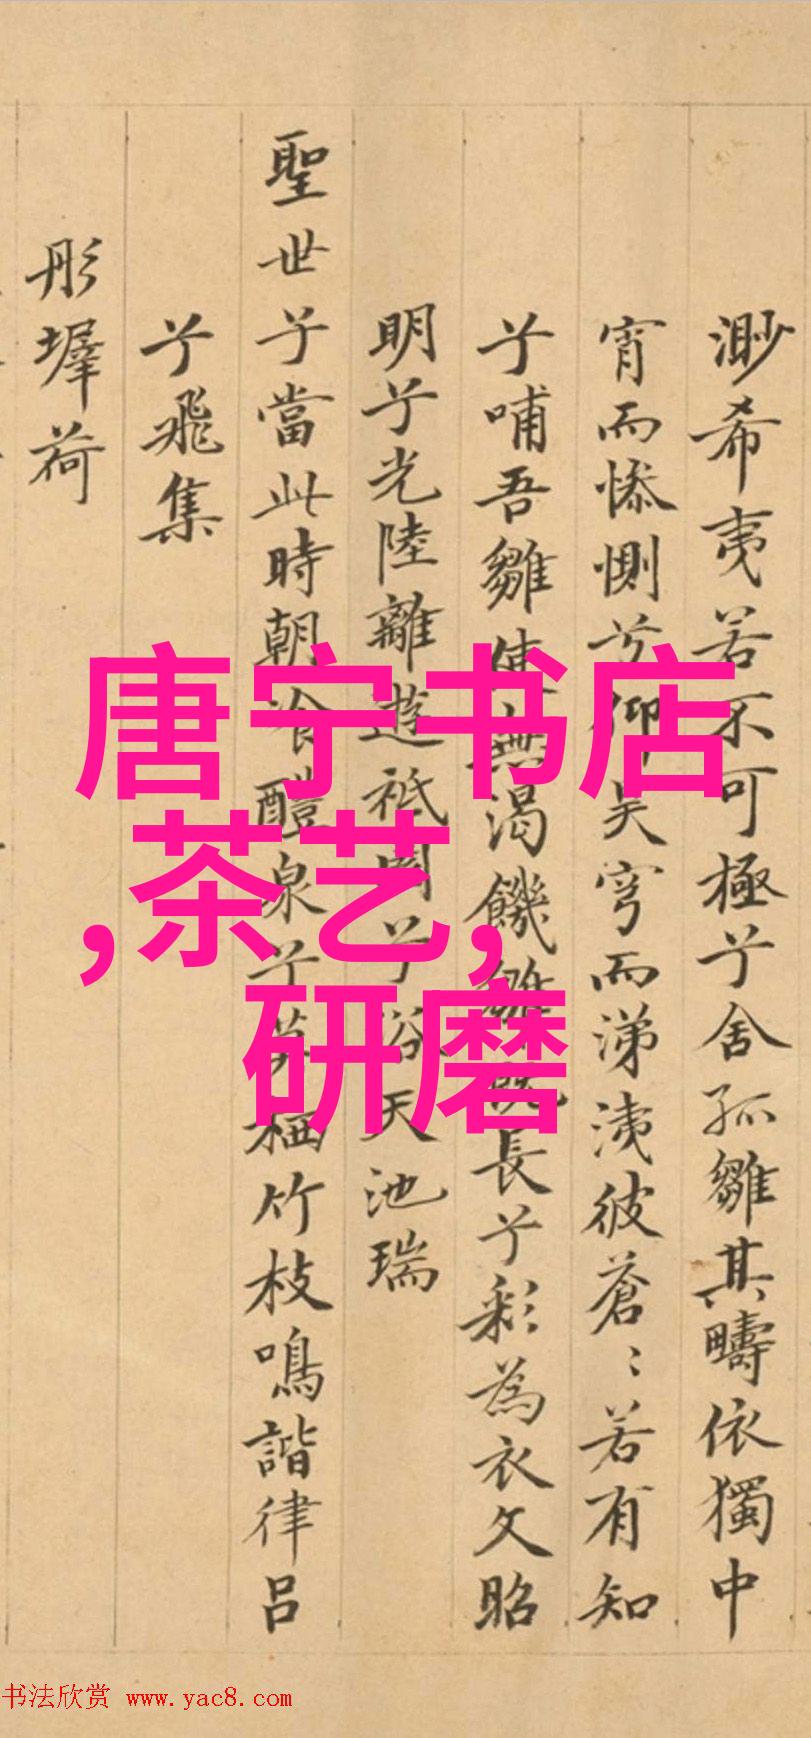 渺希夷若不可極兮舍孤雛其疇依獨中
宵而慘惻兮仰昊穹而涕洟彼蒼〻若有知
兮哺吾雛使無渴饑雛既長兮彩為衣文昭
明兮光陸離遊祗園兮浴天池瑞
聖世兮當此時朝飡醴泉兮莫栖竹枝鳴諧律呂
兮飛集
彤墀荷
唐宁书店
,茶艺,
研磨
书法欣赏 www.yac8.com